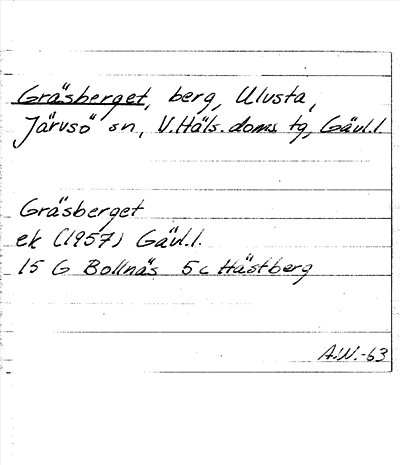 Gräsberget, berg, Ulvsta,
Järvsö sn, V.Häls. doms tg, Gävl.l.
Gräsberget
ek (1957) Gävl.l.
15 G Bollnäs 5c Hästberg
A.W.-63